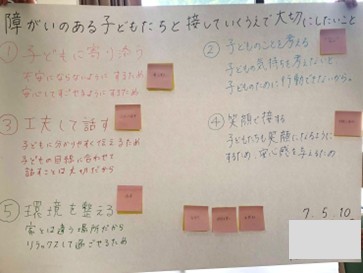 障がいのある子どもたちと接していくうえで大切にしたいこと
① 子どもに寄り添う
不安にならないようにするため
安心してすごせるようにするため
② 子どものことを考える
子どもの気持ちを考えないと、
子どものために行動できないから。
③ 工夫して話す
子どもに分かりやすく伝えるため
子どもの目線に合わせて
話すことは大切だから
④ 笑顔で接する
子どもたちも笑顔になるように
するため 安心感を与えるため
⑤ 環境を整える
家とは違う場所だから
リラックスして過ごせるため
7.5.10